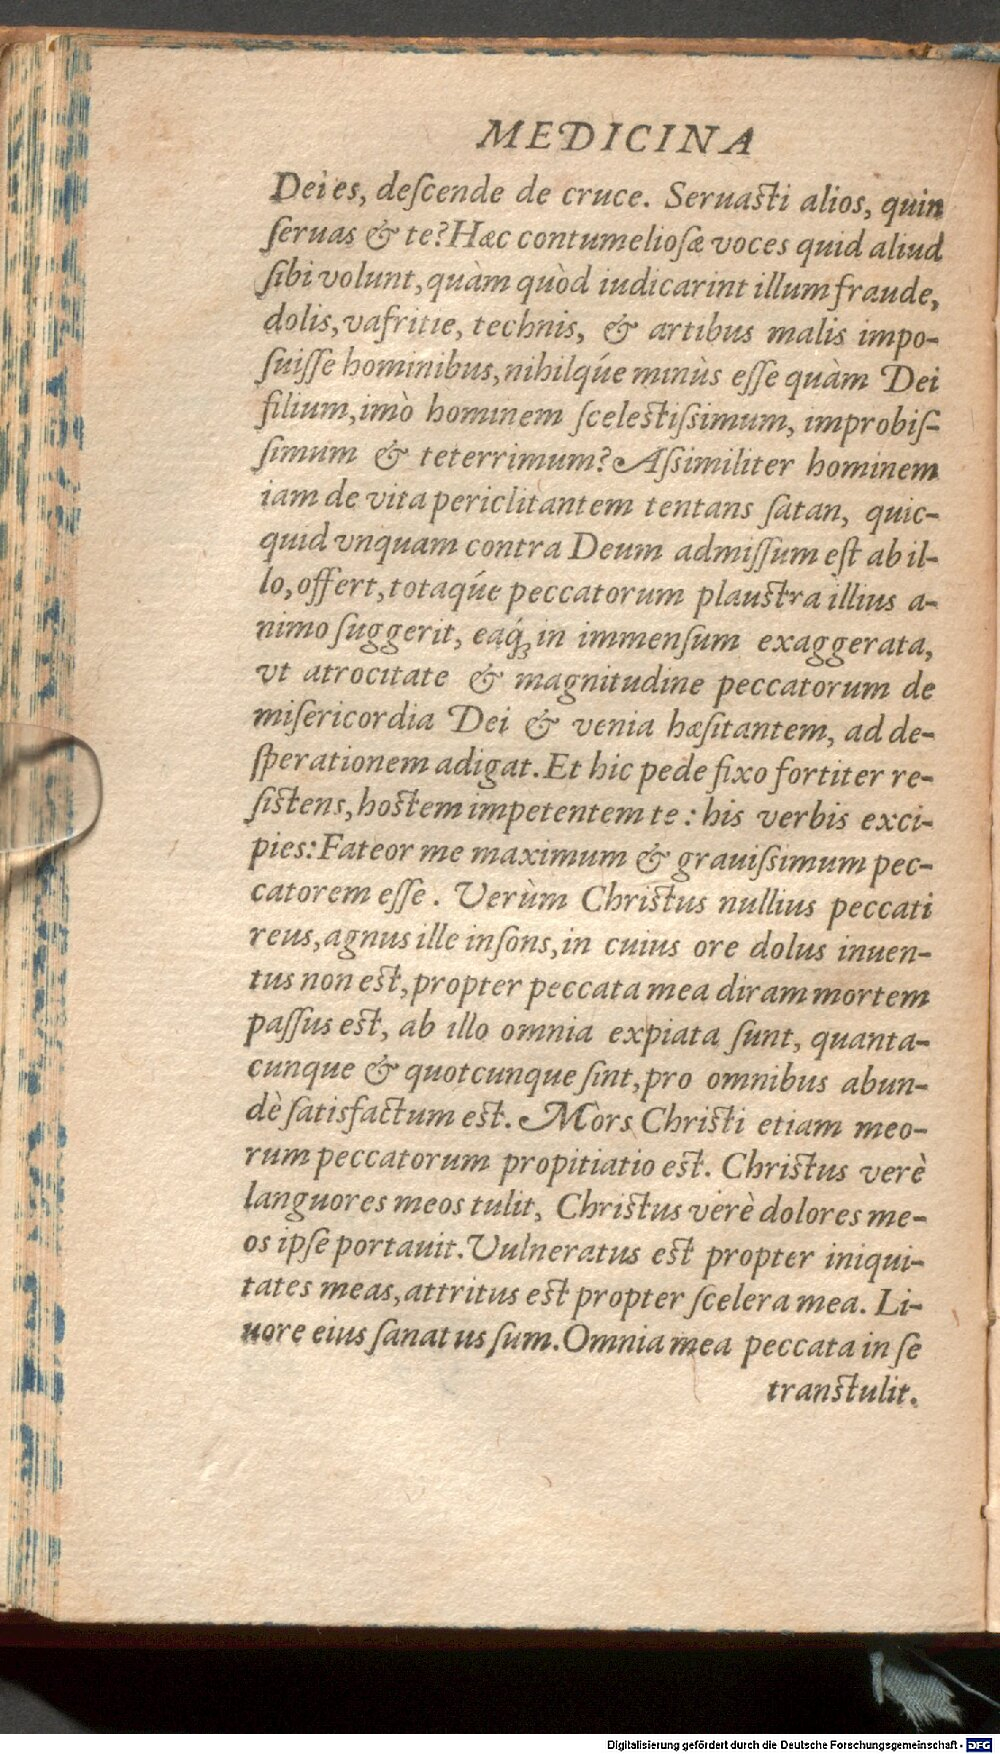 MEDICINA
Dei es, deſcende de cruce. Seruasti alios, quin
ſeruas & te? Hæc contumelioſæ voces quid aliud
ſibi volunt, quàm quòd iudicarint illum fraude,
dolis, vafritie, technis, & artibus malis impo-
ſuiſſe hominibus, nihilqúe minùs eſſe quàm Dei
filium, imò hominem ſcelestiſsimum, improbiſ-
ſimum & teterrimum? Aſsimiliter hominem
iam de vita periclitantem tentans ſatan, quic-
quid vnquam contra Deum admiſſum eſt ab il-
lo, offert, totaqúe peccatorum plaustra illius a-
nimo ſuggerit, eaq́ꝫ in immenſum exaggerata,
vt atrocitate & magnitudine peccatorum de
miſericordia Dei & venia hæſitantem, ad de-
ſperationem adigat. Et hic pede fixo fortiter re-
ſistens, hostem impetentem te: his verbis exci-
pies: Fateor me maximum & grauiſsimum pec-
catorem eſſe. Verùm Christus nullius peccati
reus, agnus ille inſons, in cuius ore dolus inuen-
tus non est, propter peccata mea diram mortem
paſſus est, ab illo omnia expiata ſunt, quanta-
cunque & quotcunque ſint, pro omnibus abun-
dè ſatisfactum est. Mors Christi etiam meo-
rum peccatorum propitiatio est. Christus verè
languores meos tulit, Christus verè dolores me-
os ipſe portauit. Vulneratus est propter iniqui-
tates meas, attritus est propter ſcelera mea. Li-
uore eius ſanatus ſum. Omnia mea peccata in ſe
transtulit.
Digitalisierung gefördert durch die Deutsche Forschungsgemeinschaft - DFG